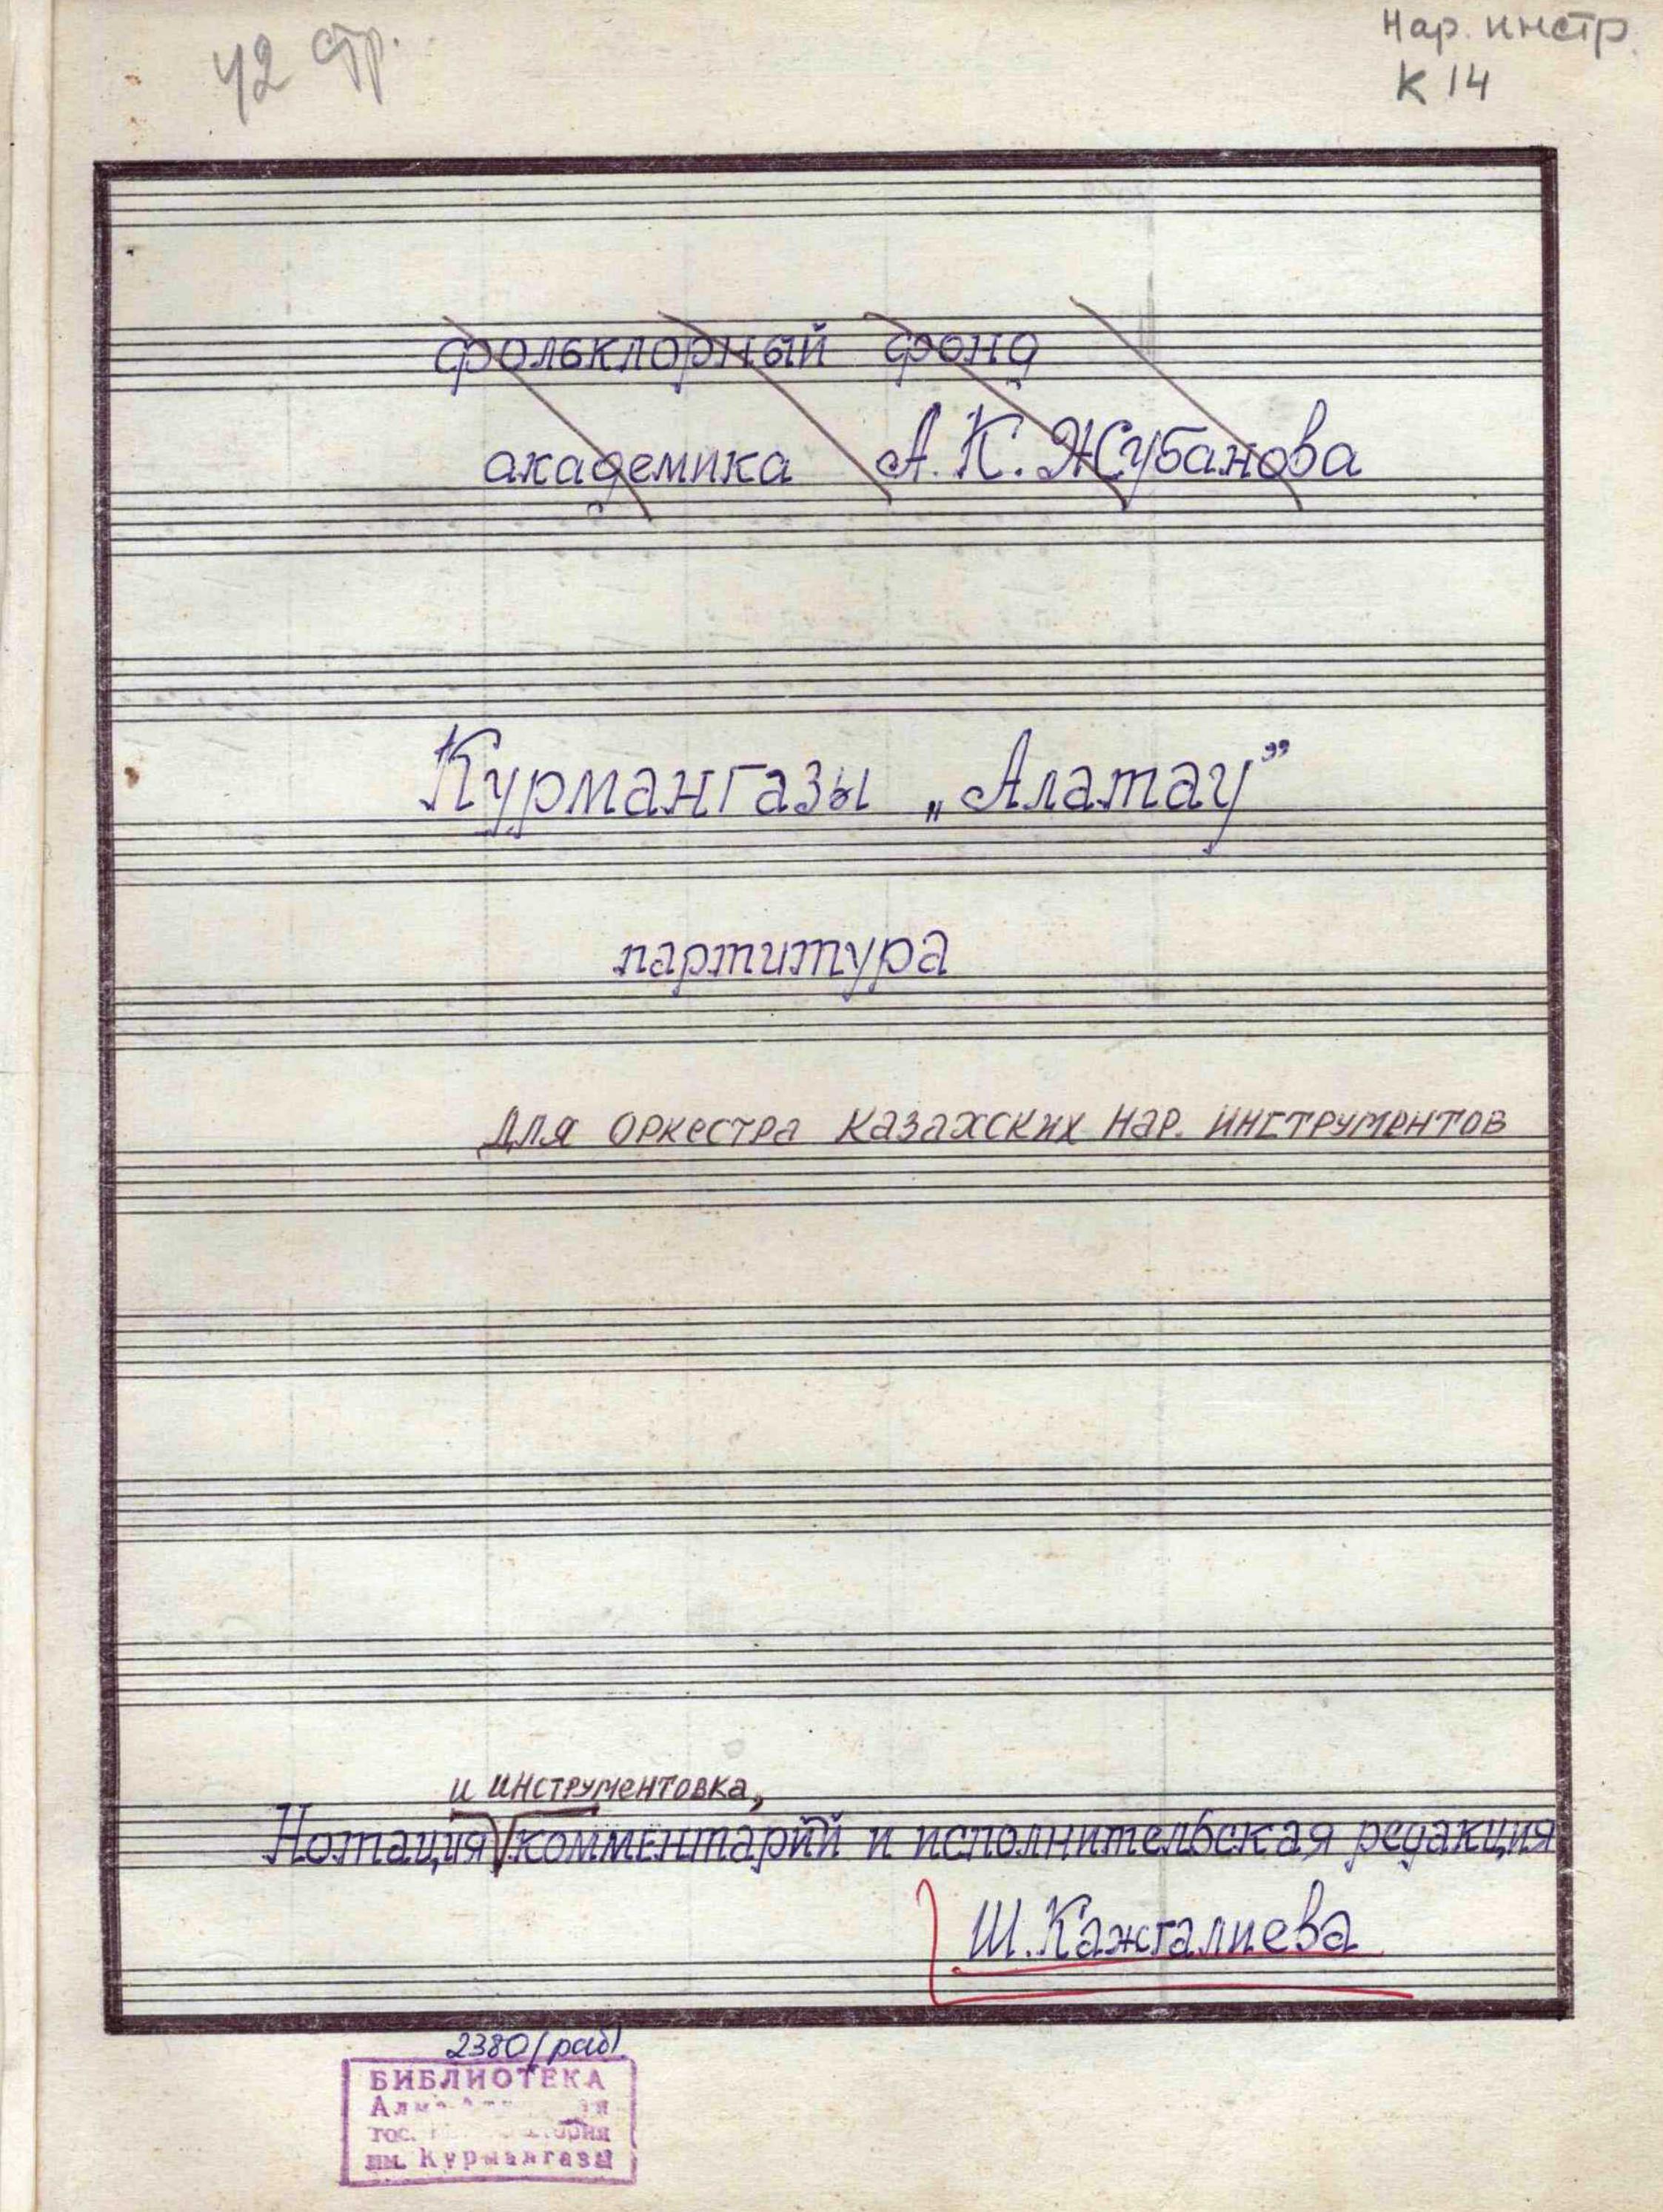 42 стр.
Нар. инстр.
К 14
фольклорный фонд
академика А. К. Жубанова
Курмангазы „Алатау”
партитура
Для оркестра казахских нар. инструментов
и инструментовка,
Нотация комментарий и исполнительская редакция
Ш. Кажгалиева
2380/раб
БИБЛИОТЕКА
гос.
им. Курмангазы